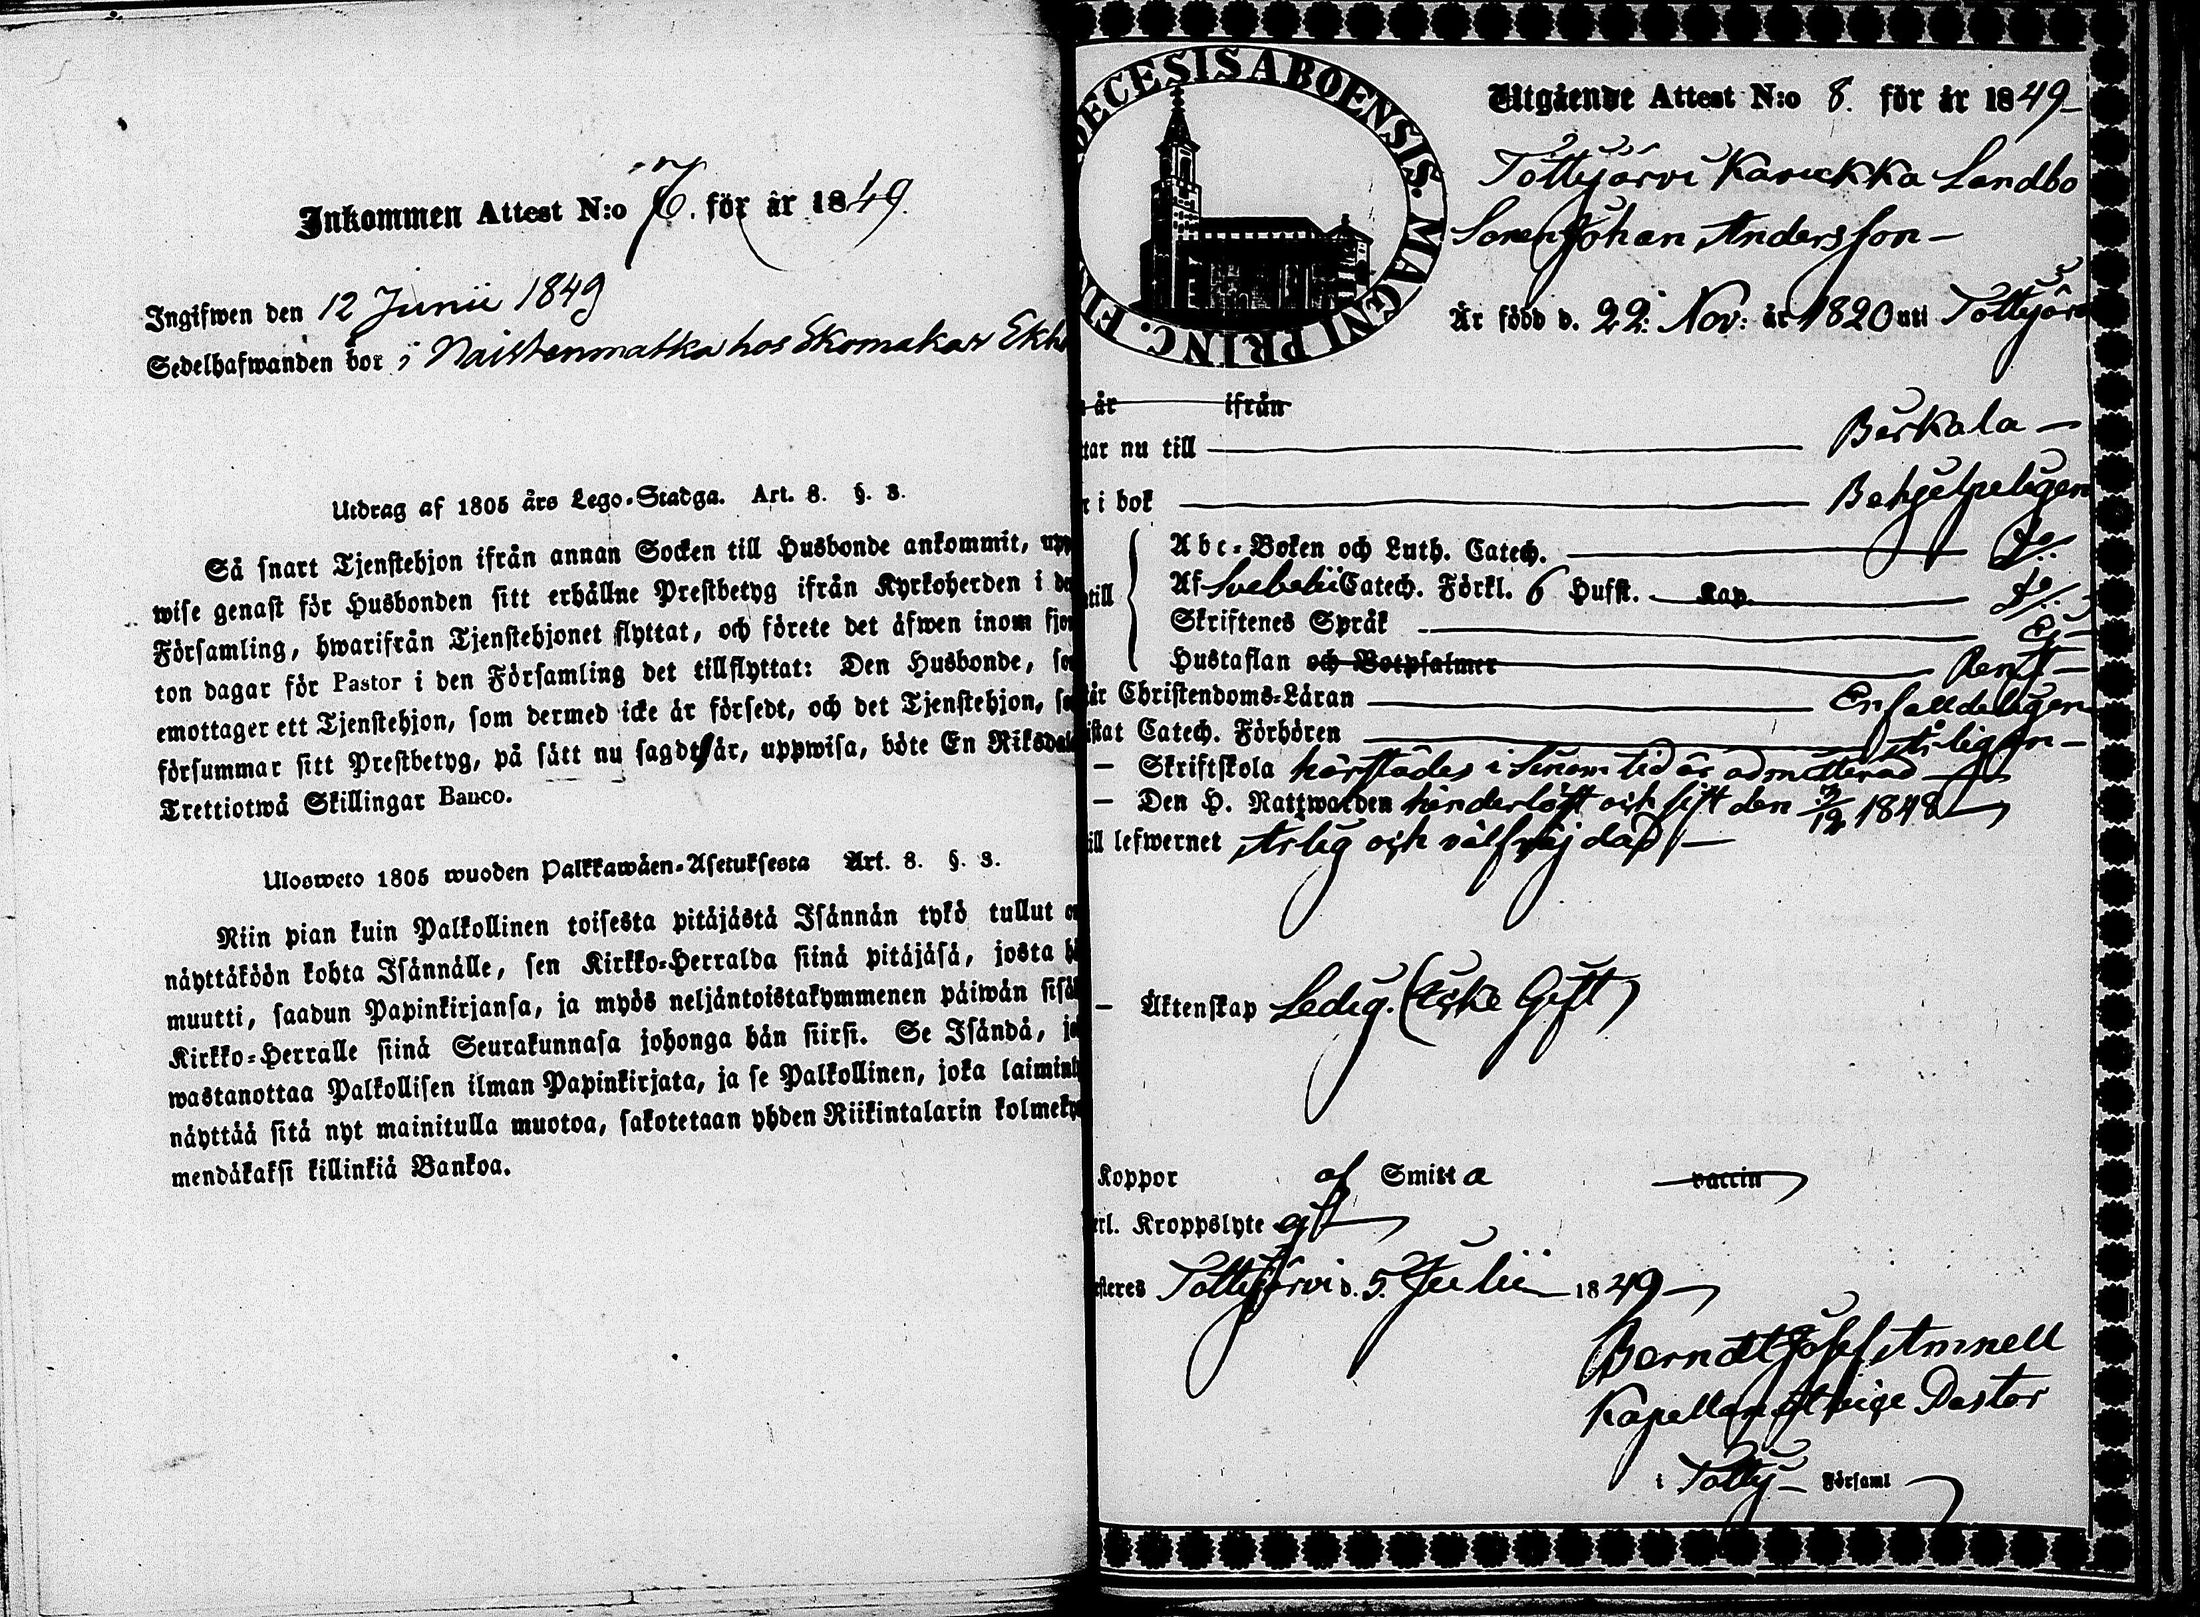 Inkommen Attest N:o 7. för år 1849.
Ingifwen den 12 Junii 1849
Sedelhafwanden bor i Naistenmatka hos Skomakar Ekh
Utdrag af 1805 års Lego-Stadga. Art. 8. §. 3.
Så snart Tjenstehjon ifrån annan Socken till Husbonde ankommit, upp
wise genast för Husbonden sitt erhållne Prestbetyg ifrån Kyrkoherden i de
Församling, hwarifrån Tjenstehjonet flyttat, och förete det äfwen inom fjor
ton dagar för Pastor i den Församling det tillflyttat: Den Husbonde, so
emottager ett Tjenstehjon, som dermed icke är försedt, och det Tjenstehjon, so
försummar sitt Prestbetyg, på sätt nu sagdt är, uppwisa, böte En Riksdale
Trettiotwå Skillingar Banco.
Ulosweto 1805 wuoden Palkkawäen-Asetuksesta Art. 8. §. 3.
Niin pian kuin Palkollinen toisesta pitäjästä Isännän tykö tullut o
näyttäköön kohta Isännälle, sen Kirkko-Herralda siinä pitäjäsä, josta hä
muutti, saadun Papinkirjansa, ja myös neljäntoistakymmenen päiwän sisäl
Kirkko-Herralle siinä Seurakunnasa johonga hän siirsi. Se Isändä, jo
wastanottaa Palkollisen ilman Papinkirjata, ja se Palkollinen, joka laiminl
näyttää sitä nyt mainitulla muotoa, sakotetaan yhden Riikintalarin kolmeky
mendäkaksi killinkiä Bankoa.
ECESIS ABOENSIS. MAGNI PRINC. FIN
Utgående Attest N:o 8. för år 1849
Tottijärvi Karukka Landbo
Sonen Johan Andersson
Är född d. 22: Nov: år 1820 uti Tottijärv
år ifrån
tar nu till Birkala
i bok Behjelpeligen
Abc-Boken och Luth. Catech. Do:
till Af Svebelii Catech. Förkl. 6 Hufst. Kap. Do:
Skriftenes Språk Ej
Hustaflan och Botpsalmer Rent
år Christendoms-Läran Enfaldeligen
istat Catech. Förhören Årligen
Skriftskola härstädes i sinom tid är admitterad
Den H. Nattwarden hinderlöst och sist den 3/12 1848
ill lefwernet ärlig och välfräjdad
Äktenskap Ledig. (Icke Gift)
Koppor af Smitta vaccin
erl. Kroppslyte ej
steres Tottijärvi d. 5. Julii 1849
Berndt Josef Amnell
Kapellan Vice Pastor
i Totty Församl